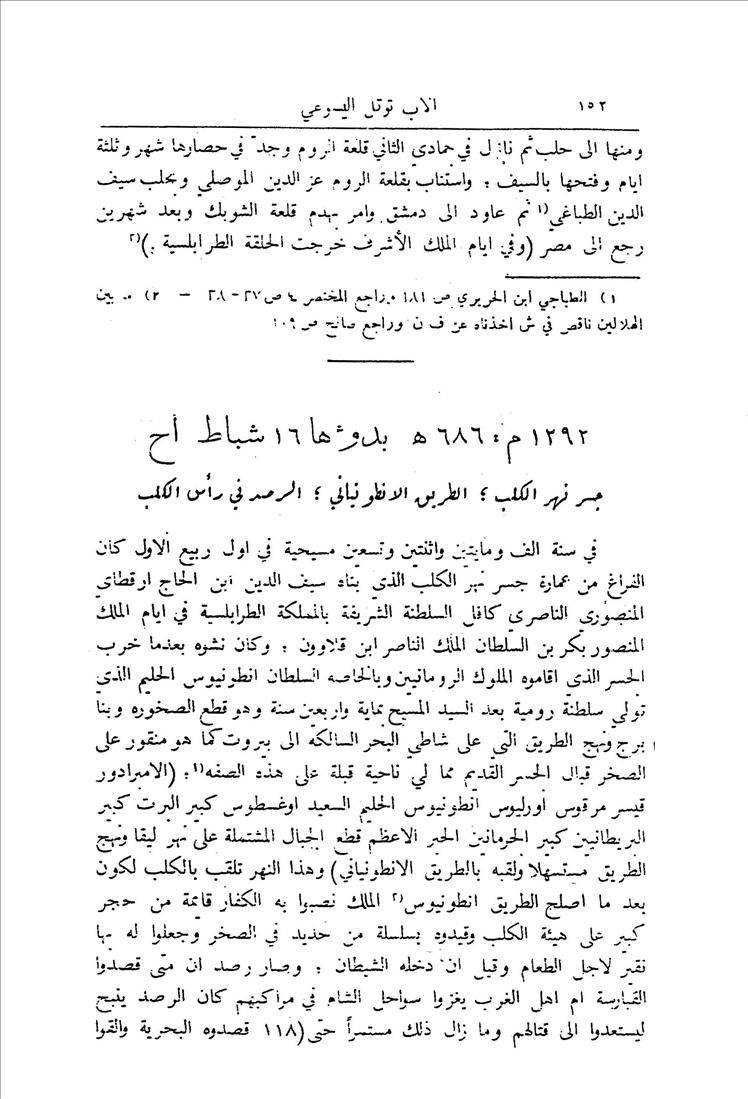 ١٥٢ الاب توتل اليسوعي
ومنها الى حلب ثم نازل في جمادي الثاني قلعة الروم وجدّ في حصارها شهر وثلثة
ايام وفتحها بالسيف : واستناب بقلعة الروم عز الدين الموصلي وبحلب سيف
الدين الطباغي(١ ثم عاود الى دمشق وامر بهدم قلعة الشوبك وبعد شهرين
رجع الى مصر (وفي ايام الملك الأشرف خرجت الحلقة الطرابلسية :)(٢
١) الطباجي ابن الحريري ص ١٨١ وراجع المختصر ٤ ص ٢٧-٢٨ — ٢) ما بين
الهلالين ناقص في ش اخذناه عن ف ن وراجع صالح ص ١٠٩
١٢٩٢ م : ٦٨٦ ه بدوّها ١٦ شباط أح
جسر نهر الكلب ؛ الطريق الانطونياني ؛ الرصد في رأس الكلب
في سنة الف ومايتين واثنتين وتسعين مسيحية في اول ربيع الاول كان
الفراغ من عمارة جسر نهر الكلب الذي بناه سيف الدين ابن الحاج ارقطاي
المنصوري الناصري كافل السلطنة الشريفة بالمملكة الطرابلسية في ايام الملك
المنصور بكر بن السلطان الملك الناصر ابن قلاوون : وكان نشوه بعدما خرب
الجسر الذي اقاموه الملوك الرومانيين وبالخاصه السلطان انطونيوس الحليم الذي
تولى سلطنة رومية بعد السيد المسيح بماية واربعين سنة وهو قطع الصخوره وبنا
برج ونهج الطريق التي على شاطي البحر السالكه الى بيروت كما هو منقور على
الصخر قبال الجسر القديم مما لي ناحية قبلة على هذه الصفه(١ : (الامبرادور
قيسر مرقوس أورليوس انطونيوس الحليم السعيد اوغسطوس كبير البرت كبير
البريطانيين كبير الجرمانيين الحبر الاعظم قطع الجبال المشتملة على نهر ليقا ونهج
الطريق مستسهلا ولقبه بالطريق الانطونياني) وهذا النهر تلقب بالكلب لكون
بعد ما اصلح الطريق انطونيوس(٢ الملك نصبوا به الكفار قايمة من حجر
كبير على هيئة الكلب وقيدوه بسلسلة من حديد في الصخر وجعلوا له بها
نقير لاجل الطعام وقيل ان دخله الشيطان : وصار رصد ان متى قصدوا
القبارسة ام اهل الغرب يغزوا سواحل الشام في مراكبهم كان الرصد ينبح
ليستعدوا الى قتالهم وما زال ذلك مستمراً حتى (١١٨ قصدوه البحرية والقوا